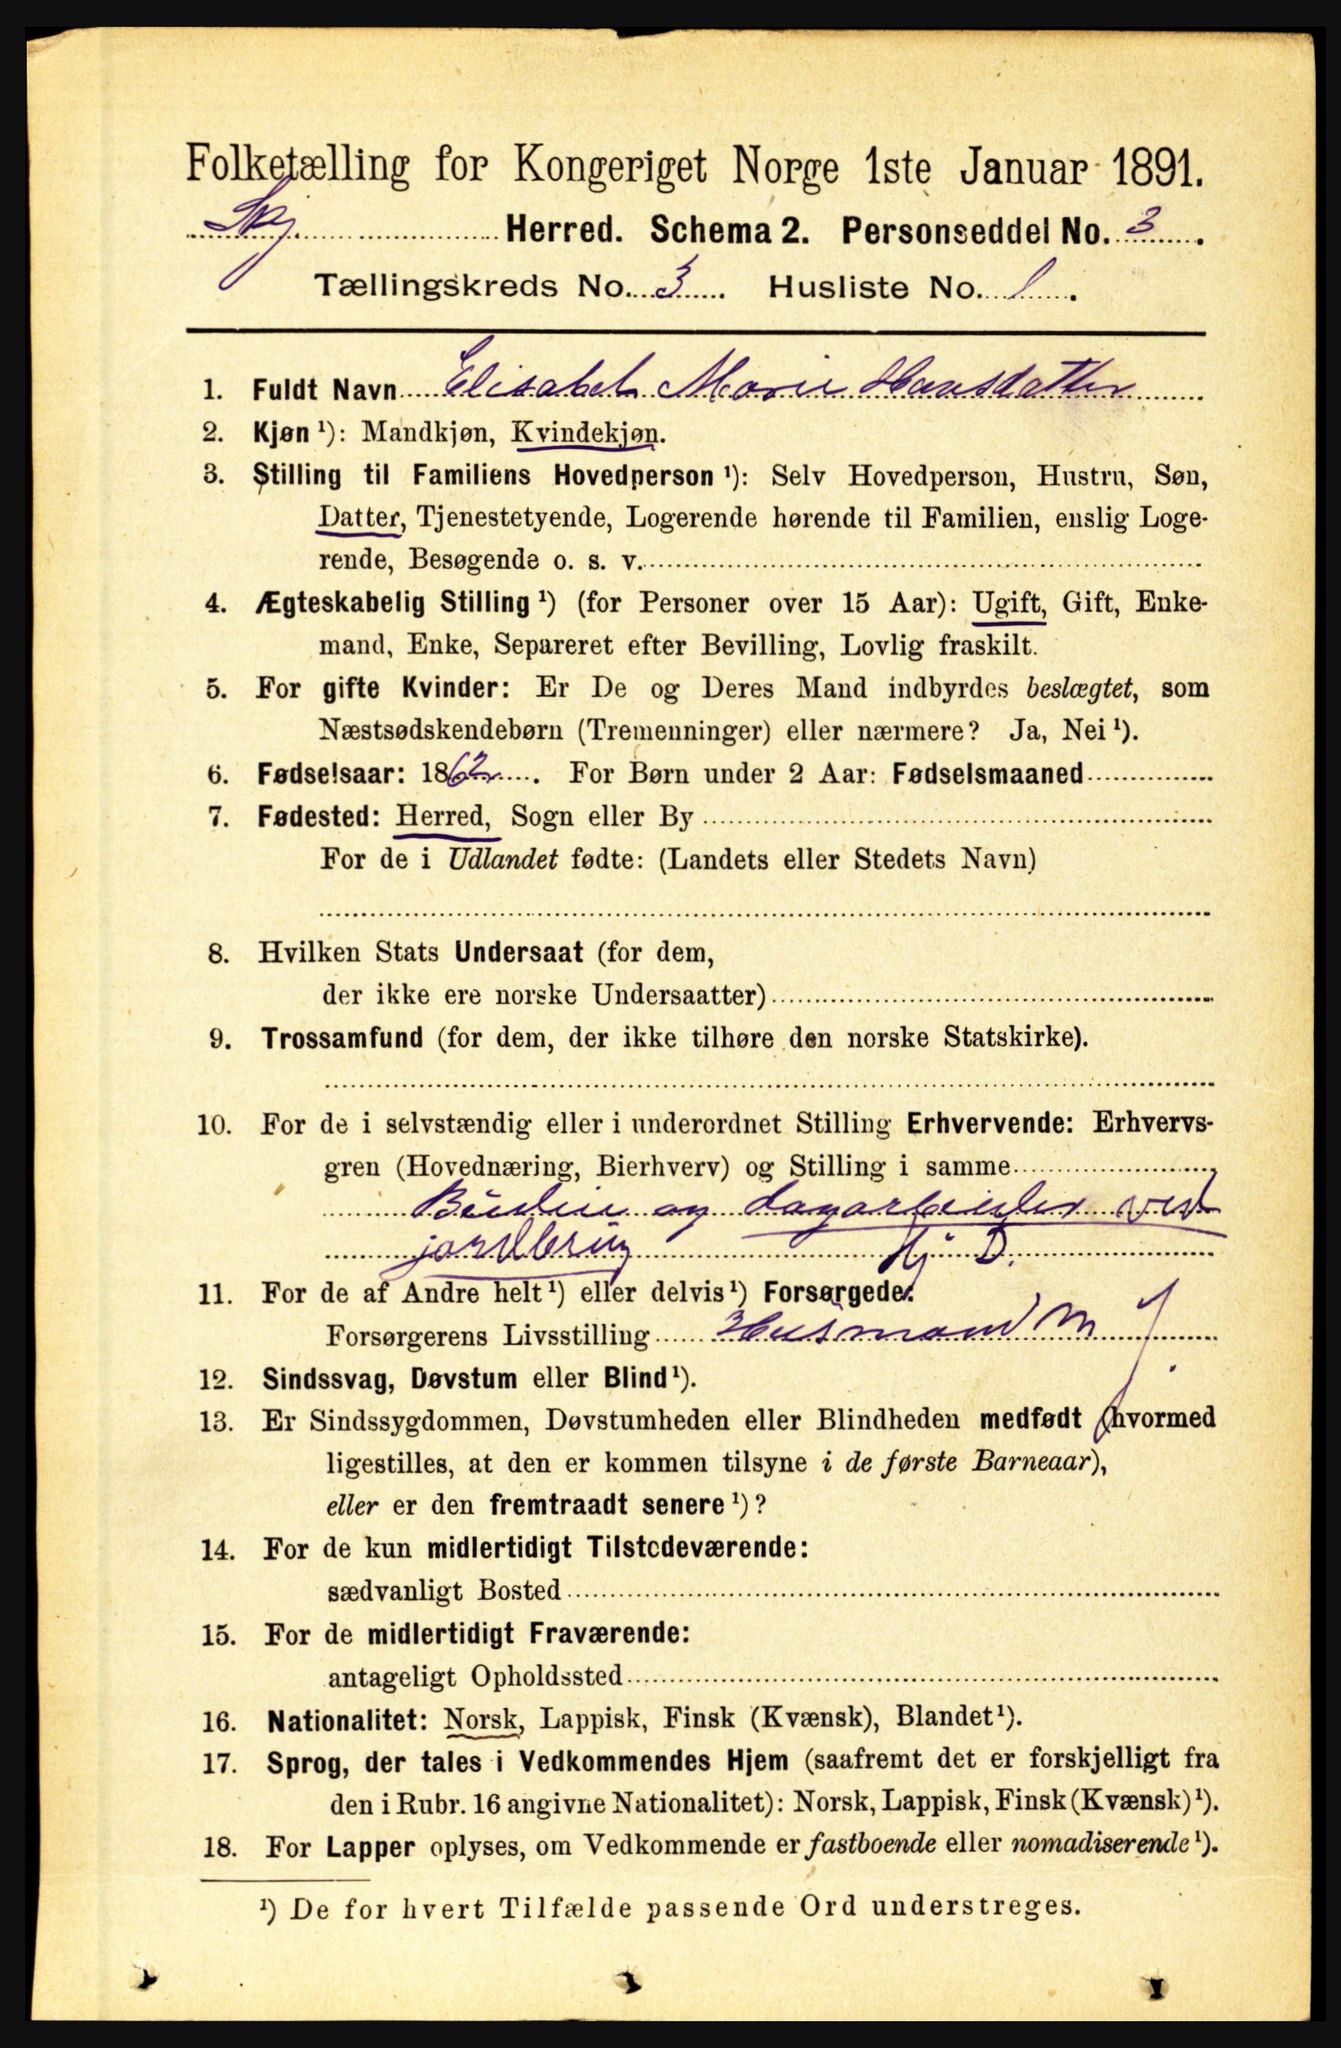 Folketælling for Kongeriget Norge 1ste Januar 1891.
Skj Herred. Schema 2. Personseddel No. 3.
Tællingskreds No. 3. Husliste No. 1.
1. Fuldt Navn Elisabet Marie Hansdatter
2. Kjøn ¹): Mandkjøn, Kvindekjøn.
3. Stilling til Familiens Hovedperson ¹): Selv Hovedperson, Hustru, Søn,
Datter, Tjenestetyende, Logerende hørende til Familien, enslig Loge-
rende, Besøgende o. s. v.
4. Ægteskabelig Stilling ¹) (for Personer over 15 Aar): Ugift, Gift, Enke-
mand, Enke, Separeret efter Bevilling, Lovlig fraskilt.
5. For gifte Kvinder: Er De og Deres Mand indbyrdes beslægtet, som
Næstsødskendebørn (Tremenninger) eller nærmere? Ja, Nei ¹).
6. Fødselsaar: 1862. For Børn under 2 Aar: Fødselsmaaned
7. Fødested: Herred, Sogn eller By
For de i Udlandet fødte: (Landets eller Stedets Navn)
8. Hvilken Stats Undersaat (for dem,
der ikke ere norske Undersaatter)
9. Trossamfund (for dem, der ikke tilhøre den norske Statskirke).
10. For de i selvstændig eller i underordnet Stilling Erhvervende: Erhvervs-
gren (Hovednæring, Bierhverv) og Stilling i samme
Budeie og dagarbeider ved
jordbrug Hj D.
11. For de af Andre helt ¹) eller delvis ¹) Forsørgede:
Forsørgerens Livsstilling Husmand m J.
12. Sindssvag, Døvstum eller Blind ¹).
13. Er Sindssygdommen, Døvstumheden eller Blindheden medfødt (hvormed
ligestilles, at den er kommen tilsyne i de første Barneaar),
eller er den fremtraadt senere ¹)?
14. For de kun midlertidigt Tilstedeværende:
sædvanligt Bosted
15. For de midlertidigt Fraværende:
antageligt Opholdssted
16. Nationalitet: Norsk, Lappisk, Finsk (Kvænsk), Blandet ¹).
17. Sprog, der tales i Vedkommendes Hjem (saafremt det er forskjelligt fra
den i Rubr. 16 angivne Nationalitet): Norsk, Lappisk, Finsk (Kvænsk) ¹).
18. For Lapper oplyses, om Vedkommende er fastboende eller nomadiserende ¹).
¹) De for hvert Tilfælde passende Ord understreges.